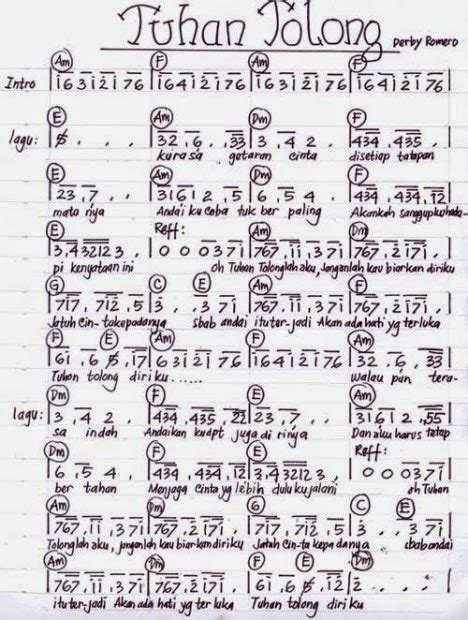 Tuhan Tolong Derby Romero
Am F Am F
Intro |i63i2i76|i64i2i76|i63i2i76|i64i2i76|
E Am Dm F
lagu: |5 . . . |32 . 6 . . 33|3 . 4 2 . |434 . 435 . |
kurasa getaran cinta disetiap tatapan
E Am Dm F
|23 . 7 . . |31612 . 5|6 . 5 4 . |434 . 434 . 12|
mata nya Andai ku coba tuk ber paling Akankah sanggupkuhada-
E Reff: Am Dm
|3 . 432123 . |0 0 0371|767 . 11 . 371|767 . 2171 . |
pi kenyataan ini oh Tuhan Tolonglah aku, Janganlah kau biarkan diriku
G C E Am F
|717 . 712 . 5|3 . . 371|767 . 11 . 371|767 . 2171 . |
Jatuh Cin-takepadanya sbab andai ituter-jadi Akan ada hati yg terluka
F E Am F Am
|61 . 6 5 . 17|63i2i76|i64i2i76|32 . 6 . . 33|
Tuhan tolong diriku...... walau pun tera-
Dm F E Am
lagu: |3 . 4 2 . |434 . 435 . 22|23 . 7 . . |31612 . 55|
sa indah Andaikan kudpt juga di rinya Dan aku harus tetap
Dm F E Reff:
|6 . 5 4 . |434 . 434 . 12|3 . 432123 . |0 0 0371|
ber tahan Menjaga Cinta yg lebih dulu ku jalani oh Tuhan
Am Dm G C E
|767 . 11 . 371|767 . 2171 . |717 . 712 . 5|3 . . 371|
Tolonglah aku, janganlah kau biarkan diriku Jatuh Cin-ta kepa danya sbab andai
Am Dm F E Dm
|767 . 11 . 371|767 . 2171 . |61 . 6 5 . 12|2 . . . . |
ituter-jadi Akan ada hati yg ter luka Tuhan tolong diriku